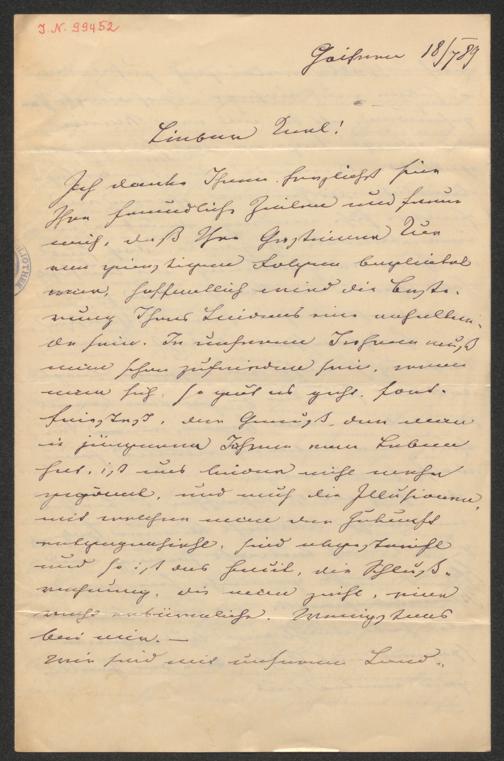 J. N. 99452
18/7 89
Lieber Karl!
Ich danke Ihnen herzlichst für
Ihre freundliche Zeilen und freue
mich, daß Ihre Gasteiner Kur
von günstigen Folgen begleitet
war, hoffentlich wird die Besse-
rung Ihres Leidens eine anhalten-
de sein. In unserem Jahren muß
man schon zufrieden sein, wenn
man sich, so gut es geht, fort-
fristet, den Genuß, den man
in jüngeren Jahren vom Leben
hat, ist uns leider nicht mehr
gegönnt, und auch die Illusionen,
mit welchen man der Zukunft
entgegensieht, sind abgestreift
und so ist das Facit, die Schluß-
rechnung, die man zieht, eine
recht erbärmliche. Wenigstens
bei mir. —
Wir sind mit unserem Land-